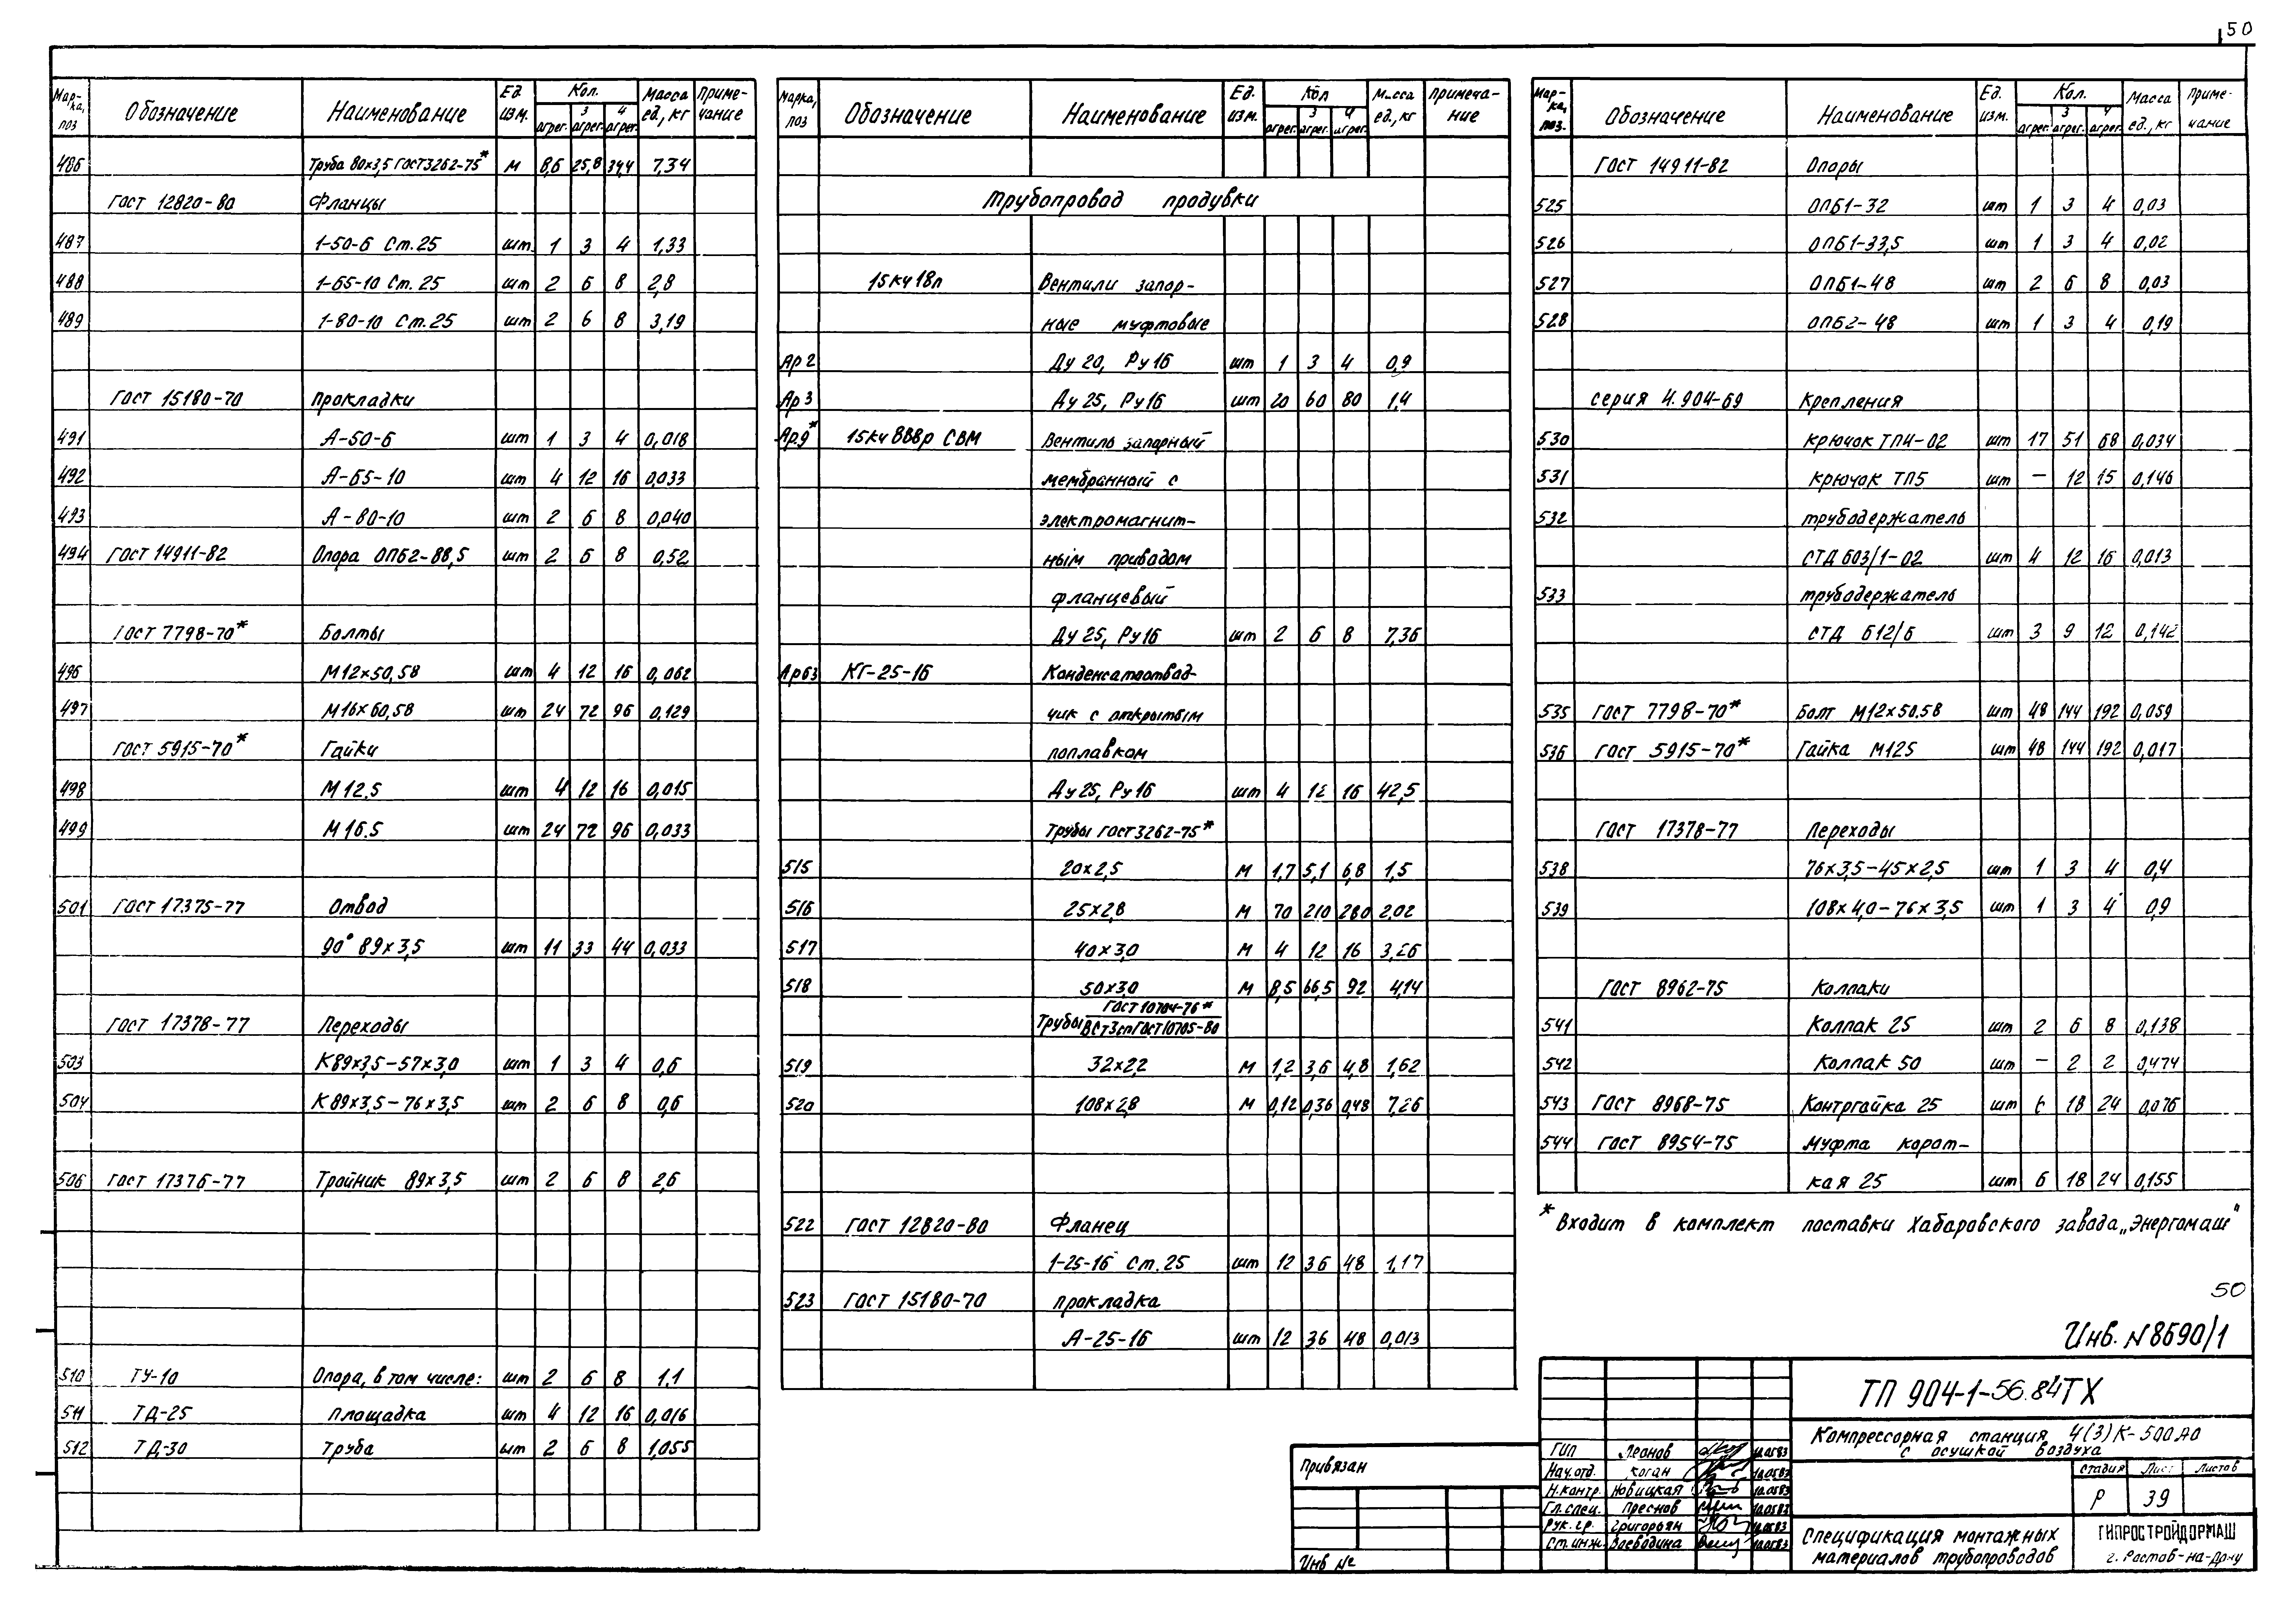 50
Мар-ка, поз Обозначение Наименование Ед. изм. Кол. агрег. 3 агрег. 4 агрег. Масса ед., кг Приме-чание
486 Труба 80х3,5 ГОСТ 3262-75* м 8,6 25,8 34,4 7,34
ГОСТ 12820-80 Фланцы
487 1-50-6 Ст.25 шт 1 3 4 1,33
488 1-65-10 Ст.25 шт 2 6 8 2,8
489 1-80-10 Ст.25 шт 2 6 8 3,19
ГОСТ 15180-70 Прокладки
491 А-50-6 шт 1 3 4 0,018
492 А-65-10 шт 4 12 16 0,033
493 А-80-10 шт 2 6 8 0,040
494 ГОСТ 14911-82 Опора ОПБ2-88,5 шт 2 6 8 0,52
ГОСТ 7798-70* Болты
496 М12х50,58 шт 4 12 16 0,062
497 М16х60,58 шт 24 72 96 0,129
ГОСТ 5915-70* Гайки
498 М12.5 шт 4 12 16 0,015
499 М16.5 шт 24 72 96 0,033
501 ГОСТ 17375-77 Отвод
90° 89х3,5 шт 11 33 44 0,033
ГОСТ 17378-77 Переходы
503 К89х3,5-57х3,0 шт 1 3 4 0,6
504 К89х3,5-76х3,5 шт 2 6 8 0,6
506 ГОСТ 17376-77 Тройник 89х3,5 шт 2 6 8 2,6
510 ТУ-10 Опора, в том числе: шт 2 6 8 1,1
511 ТД-25 площадка шт 4 12 16 0,016
512 ТД-30 труба шт 2 6 8 1,055
Марка, поз Обозначение Наименование Ед. изм. Кол агрег. 3 агрег. 4 агрег. Масса ед., кг Примеча-ние
Трубопровод продувки
15кч18п Вентили запор-
ные муфтовые
Ар2 Ду 20, Ру16 шт 1 3 4 0,9
Ар3 Ду 25, Ру16 шт 20 60 80 1,4
Ар9* 15кч 888р СВМ Вентиль запорный
мембранный с
электромагнит-
ным приводом
фланцевый
Ду 25, Ру16 шт 2 6 8 7,36
Ар63 КГ-25-16 Конденсатоотвод-
чик с открытым
поплавком
Ду 25, Ру16 шт 4 12 16 42,5
Трубы ГОСТ 3262-75*
515 20х2,5 м 1,7 5,1 6,8 1,5
516 25х2,8 м 70 210 280 2,02
517 40х3,0 м 4 12 16 3,26
518 50х3,0 м 8,5 66,5 92 4,14
Трубы ГОСТ 10704-76*
ВСт3сп ГОСТ 10705-80
519 32х2,2 м 1,2 3,6 4,8 1,62
520 108х2,8 м 0,12 0,36 0,48 7,26
522 ГОСТ 12820-80 Фланец
1-25-16 Ст.25 шт 12 36 48 1,17
523 ГОСТ 15180-70 прокладка
А-25-16 шт 12 36 48 0,013
Мар-ка, поз. Обозначение Наименование Ед. изм. Кол. агрег. 3 агрег. 4 агрег. Масса ед., кг Приме-чание
ГОСТ 14911-82 Опоры
525 ОПБ1-32 шт 1 3 4 0,03
526 ОПБ1-33,5 шт 1 3 4 0,02
527 ОПБ1-48 шт 2 6 8 0,03
528 ОПБ2-48 шт 1 3 4 0,19
серия 4.904-69 Крепления
530 крючок ТП4-02 шт 17 51 68 0,034
531 крючок ТП5 шт — 12 15 0,146
532 трубодержатель
СТД 603/1-02 шт 4 12 16 0,013
533 трубодержатель
СТД 612/6 шт 3 9 12 0,142
535 ГОСТ 7798-70* Болт М12х50.58 шт 48 144 192 0,059
536 ГОСТ 5915-70* Гайка М125 шт 48 144 192 0,017
ГОСТ 17378-77 Переходы
538 76х3,5-45х2,5 шт 1 3 4 0,4
539 108х4,0-76х3,5 шт 1 3 4 0,9
ГОСТ 8962-75 Колпаки
541 Колпак 25 шт 2 6 8 0,138
542 Колпак 50 шт — 2 2 0,474
543 ГОСТ 8968-75 Контргайка 25 шт 6 18 24 0,076
544 ГОСТ 8954-75 Муфта корот-
кая 25 шт 6 18 24 0,155
* Входит в комплект поставки Хабаровского завода „Энергомаш"
50
Инв. N8690/1
ТП 904-1-56.84ТХ
Компрессорная станция 4(3)К-500АО
с осушкой воздуха
Привязан
Инв №
ГИП Леонов 10.05.83
Нач.отд. Коган 10.05.83
Н.контр. Новицкая 10.05.83
Гл.спец. Преснов 10.05.83
Рук.гр. Григорьян 10.05.83
Ст.инж. Воеводина 10.05.83
Стадия Лист Листов
Р 39
Спецификация монтажных
материалов трубопроводов
ГИПРОСТРОЙДОРМАШ
г. Ростов-на-Дону